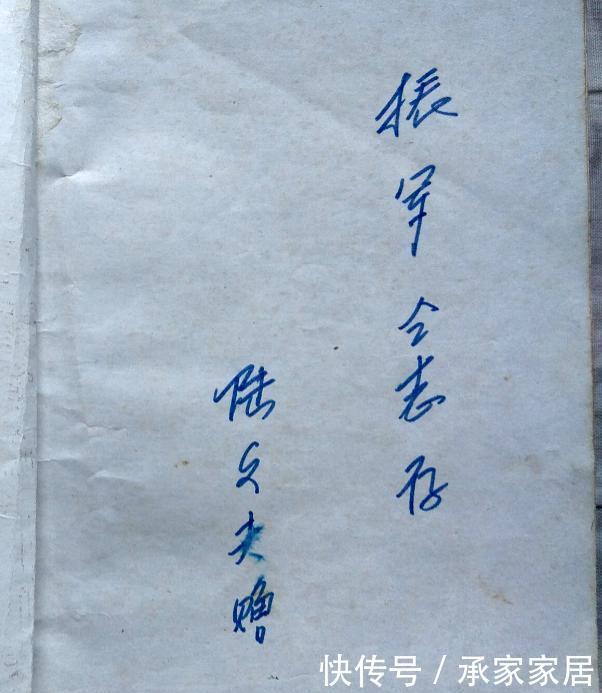 振军仝志存
陆文夫赠
快传号 / 承家家居